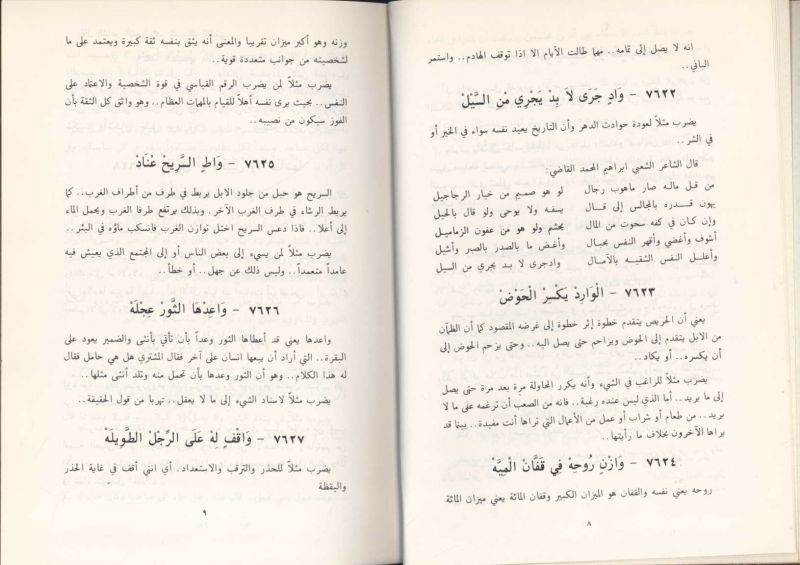 انه لا يصل إلى تمامه.. مهما طالت الأيام الا اذا توقف الهادم.. واستمر
الباني..
٧٦٢٢ - وَادٍ جَرَى لاَ بِدْ يَجْرِي مْنِ السَّيْلْ
يضرب مثلاً لعودة حوادث الدهر وأن التاريخ يعيد نفسه سواء في الخير أو
في الشر..
قال الشاعر الشعبي ابراهيم المحمد القاضي:
من قل ماله صار ماهوب رجال لو هو صميم من خيار الرجاجيل
يهون قـدره بالمجالس إلى قـال يسفه ولا يوحى ولو قال بالحيل
وإن كان في كفه سحوت من المال يحشم ولو هو من عفون الزماميل
أشوف وأغضي وأقهر النفس بحبال وأغض ما بالصدر بالصبر وأشيل
وأعلل النفس الشقيه بالآمـال وادجرى لا بد يجري من السيل
٧٦٢٣ - الْوَارِدْ يَكْسِرْ الْحَوْضْ
يعني أن الحريص يتقدم خطوة إثر خطوة إلى غرضه المقصود كما أن الظمآن
من الابل يتقدم إلى الحوض ويزاحم حتى يصل اليه.. وحتى يزحم الحوض إلى
أن يكسره.. أو يكاد..
يضرب مثلاً للراغب في الشيء وأنه يكرر المحاولة مرة بعد مرة حتى يصل
إلى ما يريد.. أما الذي ليس عنده رغبة.. فانه من الصعب أن ترغمه على ما لا
يريد.. من طعام أو شراب أو عمل من الأعمال التي تراها أنت مفيدة.. بينما قد
يراها الآخرون بخلاف ما رأيتها..
٧٦٢٤ - وَازْنِ رُوحِهْ فِي قَفَّانَ الْمِيَّهْ
روحه يعني نفسه والقفان هو الميزان الكبير وقفان المائة يعني ميزان المائة
٨
وزنه وهو أكبر ميزان تقريبا والمعنى أنه يثق بنفسه ثقة كبيرة ويعتمد على ما
لشخصيته من جوانب متعددة قوية..
يضرب مثلاً لمن يضرب الرقم القياسي في قوة الشخصية والاعتماد على
النفس.. بحيث يرى نفسه أهلاً للقيام بالمهمات العظام.. وهو واثق كل الثقة بأن
الفوز سيكون من نصيبه..
٧٦٢٥ - وَاطٍ السَّرِيحْ عْنَادْ
السريح هو حبل من جلود الابل يربط في طرف من أطراف الغرب.. كما
يربط الرشاء في طرف الغرب الآخر. وبذلك يرتفع طرفا الغرب ويحمل الماء
إلى أعلا.. فاذا دعس السريح اختل توازن الغرب فانسكب ماؤه في البئر..
يضرب مثلاً لمن يسيء إلى بعض الناس أو إلى المجتمع الذي يعيش فيه
عامداً متعمداً.. وليس ذلك عن جهل.. أو خطأ..
٧٦٢٦ - وَاعِدْهَا الثَّوْرْ عِجْلَهْ
واعدها يعني قد أعطاها الثور وعداً بأن تأتي بأنثى والضمير يعود على
البقرة.. التي أراد أن يبيعها انسان على آخر فقال المشتري هل هي حامل فقال
له هذا الكلام.. وهو أن الثور وعدها بأن تحمل منه وتلد أنثى مثلها..
يضرب مثلاً لاسناد الشيء إلى ما لا يعقل.. تهربا من قول الحقيقة..
٧٦٢٧ - وَاقْفٍ لِهْ عَلَى الرِّجْلْ الطَّوِيلَهْ
يضرب مثلاً للحذر والترقب والاستعداد. أي انني أقف في غاية الحذر
واليقظة
٩